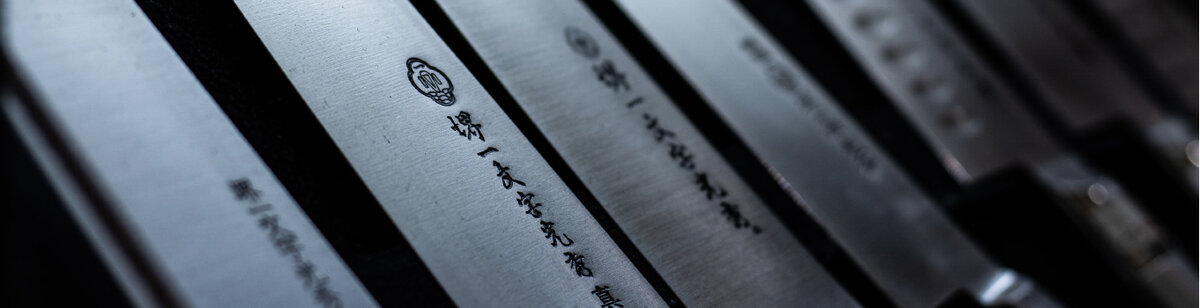 堺一文字光
堺一文字光秀真
堺一文字光秀